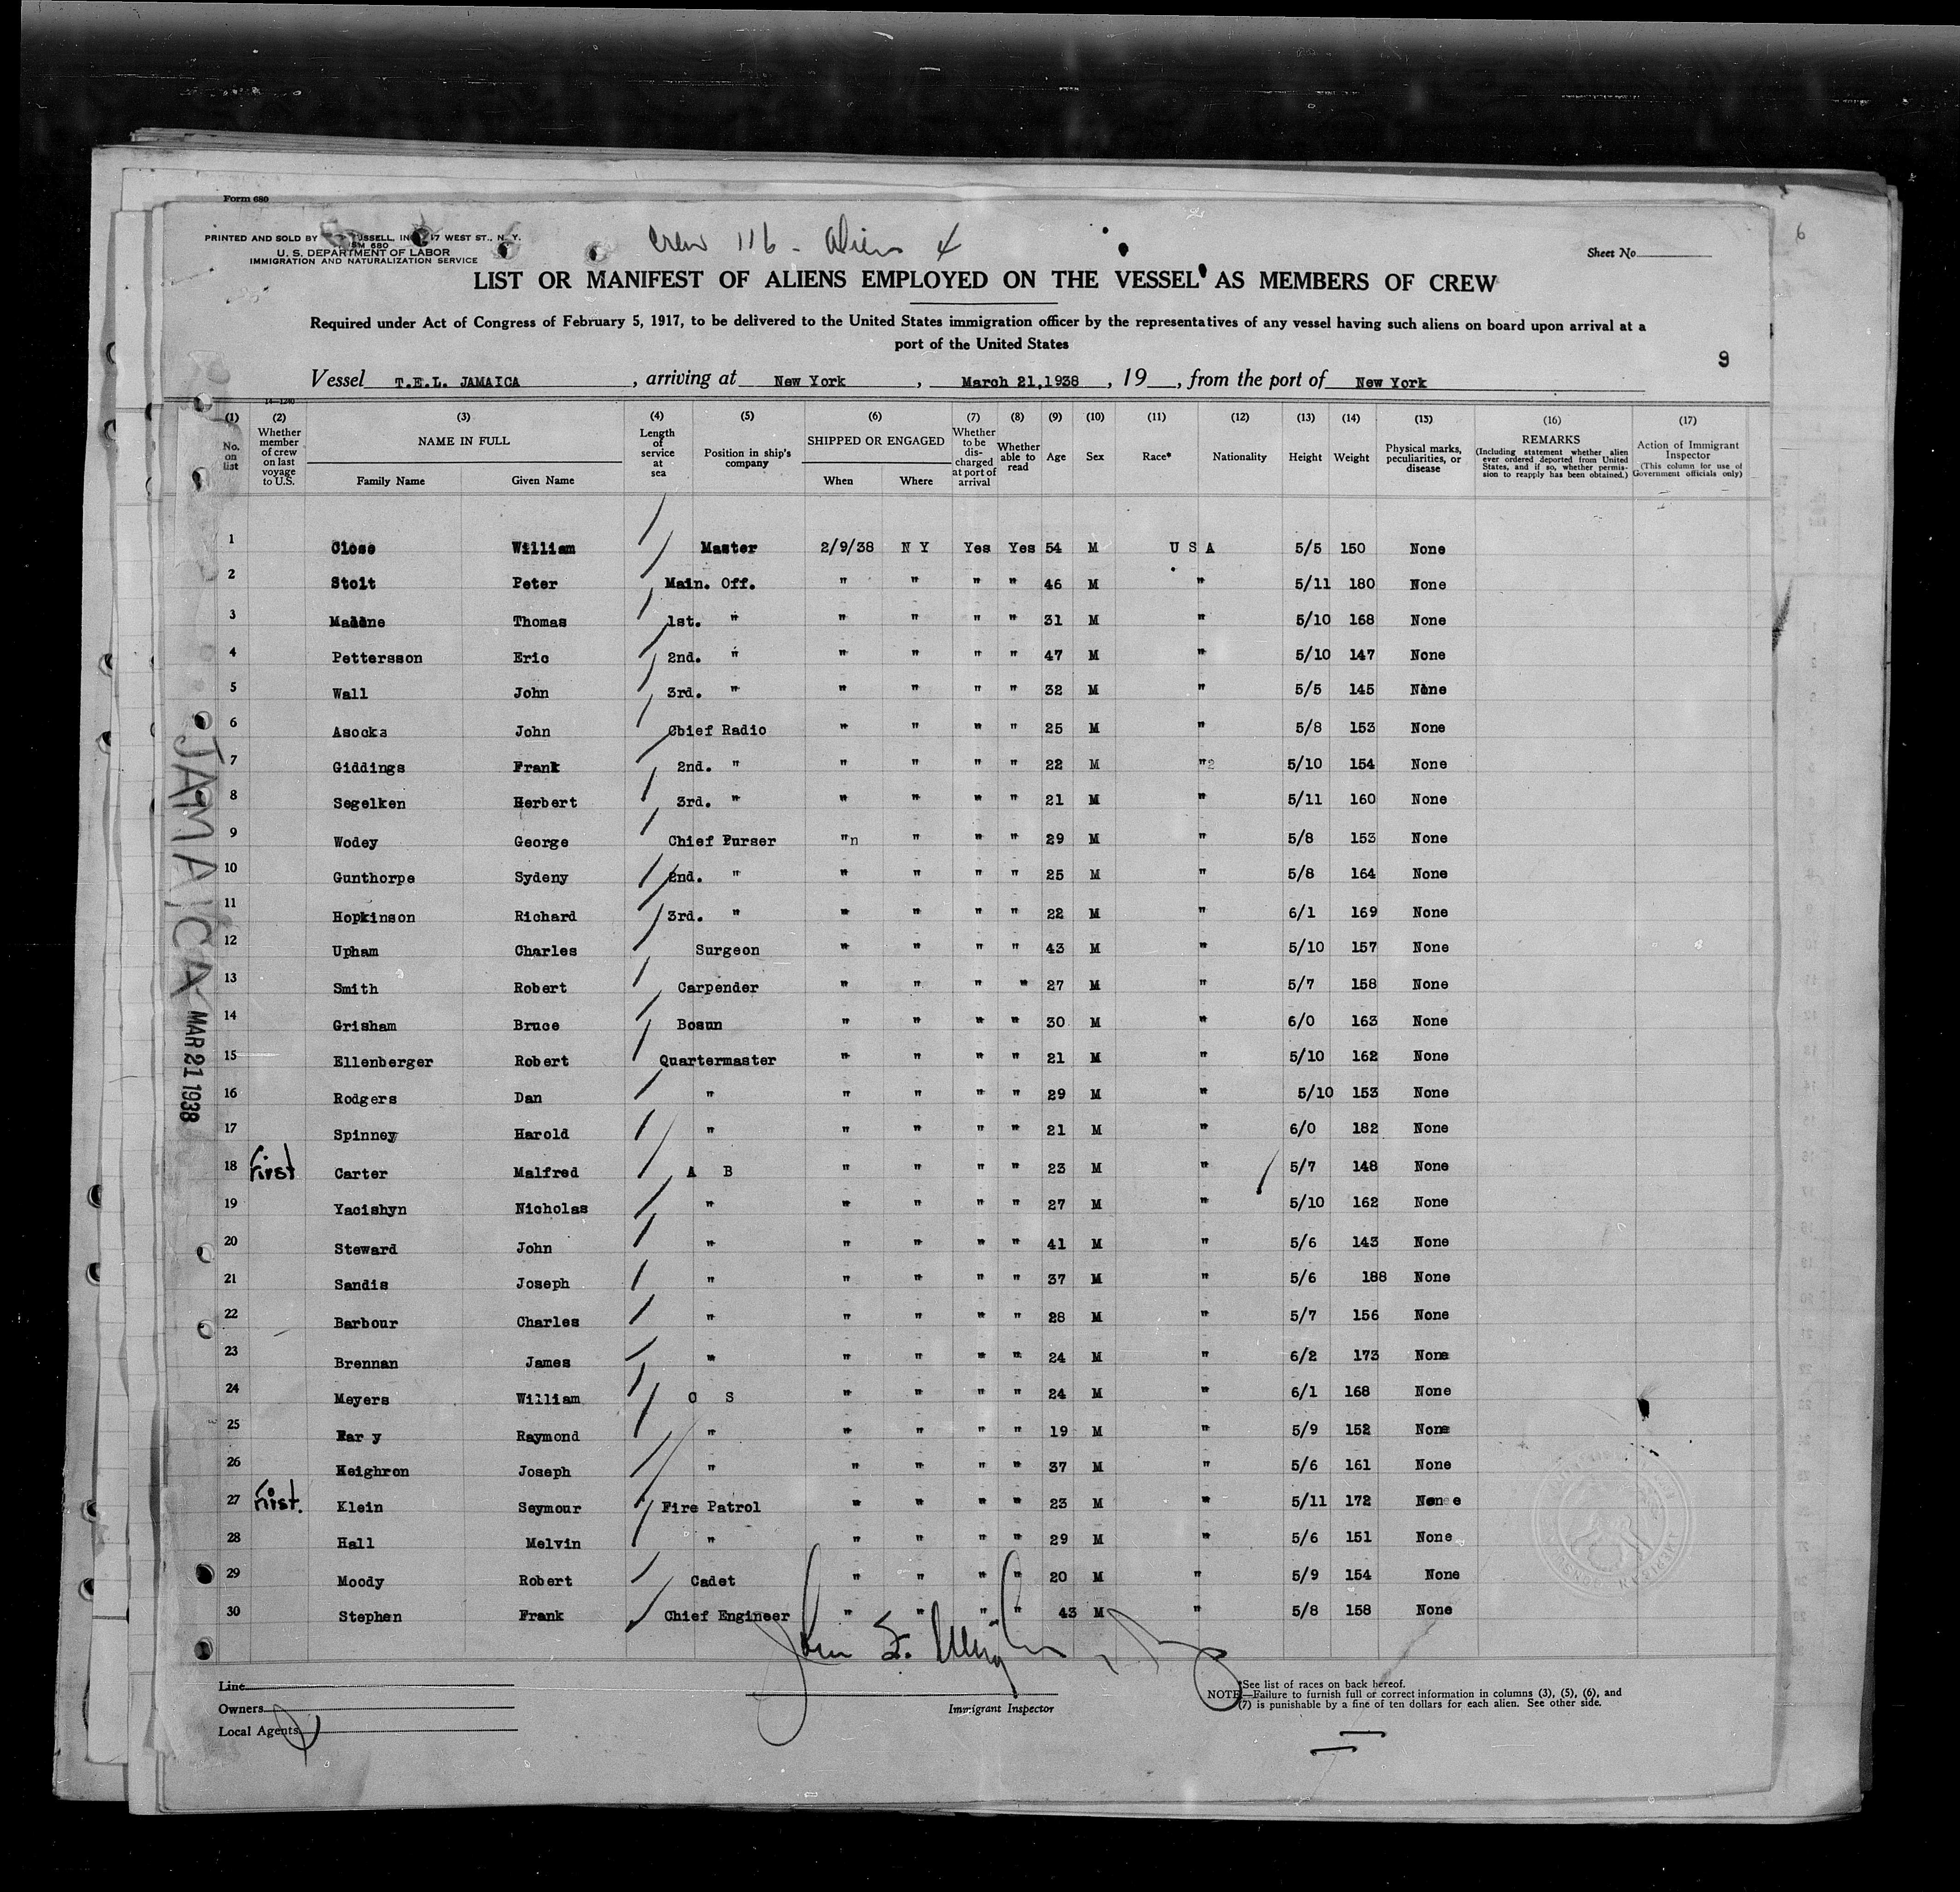 Form 680
PRINTED AND SOLD BY USSELL, IN 17 WEST ST., N. Y.
SM 680
U. S. DEPARTMENT OF LABOR
IMMIGRATION AND NATURALIZATION SERVICE
Crew 116 - Aliens 4
Sheet No.
6
LIST OR MANIFEST OF ALIENS EMPLOYED ON THE VESSEL AS MEMBERS OF CREW
Required under Act of Congress of February 5, 1917, to be delivered to the United States immigration officer by the representatives of any vessel having such aliens on board upon arrival at a
port of the United States
9
Vessel T.E.L. JAMAICA, arriving at New York, March 21,1938, 19, from the port of New York
14-1240
(1) (2) (3) (4) (5) (6) (7) (8) (9) (10) (11) (12) (13) (14) (15) (16) (17)
No. on list
Whether member of crew on last voyage to U.S.
NAME IN FULL
Family Name Given Name
Length of service at sea
Position in ship's company
SHIPPED OR ENGAGED
When Where
Whether to be discharged at port of arrival
Whether able to read
Age Sex Race* Nationality Height Weight
Physical marks, peculiarities, or disease
REMARKS
(Including statement whether alien ever ordered deported from United States, and if so, whether permission to reapply has been obtained.)
Action of Immigrant Inspector
(This column for use of Government officials only)
1 Close William Master 2/9/38 N Y Yes Yes 54 M U S A 5/5 150 None
2 Stolt Peter Main. Off. " " " " 46 M " 5/11 180 None
3 Thomas 1st. " " " " " 31 M " 5/10 168 None
4 Pettersson Eric 2nd. " " " " " 47 M " 5/10 147 None
5 Wall John 3rd. " " " " " 32 M " 5/5 145 None
6 Asocks John Cbief Radio " " " " 25 M " 5/8 153 None
7 Giddings Frank 2nd. " " " " " 22 M "2 5/10 154 None
8 Segelken Herbert 3rd. " " " " " 21 M " 5/11 160 None
9 Wodey George Chief Purser "n " " " 29 M " 5/8 153 None
10 Gunthorpe Sydeny 2nd. " " " " " 25 M " 5/8 164 None
11 Hopkinson Richard 3rd. " " " " " 22 M " 6/1 169 None
12 Upham Charles Surgeon " " " " 43 M " 5/10 157 None
13 Smith Robert Carpender " " " " 27 M " 5/7 158 None
14 Grisham Bruce Bosun " " " " 30 M " 6/0 163 None
15 Ellenberger Robert Quartermaster " " " " 21 M " 5/10 162 None
16 Rodgers Dan " " " " " 29 M " 5/10 153 None
17 Spinney Harold " " " " " 21 M " 6/0 182 None
18 First Carter Malfred A B " " " " 23 M " 5/7 148 None
19 Yacishyn Nicholas " " " " " 27 M " 5/10 162 None
20 Steward John " " " " " 41 M " 5/6 143 None
21 Sandis Joseph " " " " " 37 M " 5/6 188 None
22 Barbour Charles " " " " " 28 M " 5/7 156 None
23 Brennan James " " " " " 24 M " 6/2 173 None
24 Meyers William O S " " " " 24 M " 6/1 168 None
25 Raymond " " " " " 19 M " 5/9 152 None
26 Keighron Joseph " " " " " 37 M " 5/6 161 None
27 First. Klein Seymour Fire Patrol " " " " 23 M " 5/11 172 None e
28 Hall Melvin " " " " " 29 M " 5/6 151 None
29 Moody Robert Cadet " " " " 20 M " 5/9 154 None
30 Stephen Frank Chief Engineer " " " " 43 M " 5/8 158 None
JAMAICA MAR 21 1938
Line
Owners
Local Agents
Immigrant Inspector
*See list of races on back hereof.
NOTE.—Failure to furnish full or correct information in columns (3), (5), (6), and
(7) is punishable by a fine of ten dollars for each alien. See other side.